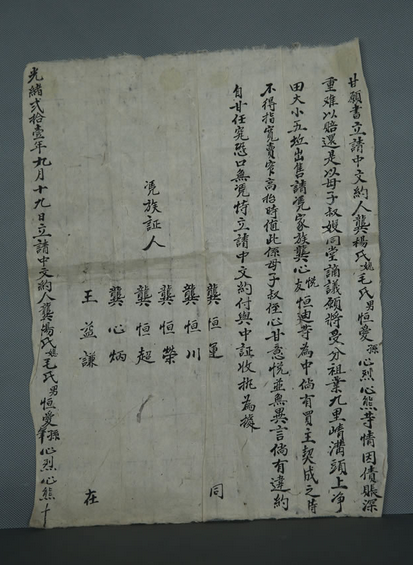 甘願書立請中文約人龔楊氏媳毛氏男恒愛孫心烈心熊等情因債賬深
重难以賠還是以母子叔嫂同堂謫議願將受分祖業九里崎溝頭上净
田大小五坵出售請凴家族龔心悦友恒迪等為中倘有買主契成之時
不得指寬賣窄高抬時值此係母子叔侄心甘意悦並無異言倘有違約
自甘任究恐口無凴特立請中文約付與中証收批為據
凴族証人
龔恒運 同
龔恒川
龔恒榮
龔恒超
龔心炳
王益謙 在
光緒弍拾壹年九月十九日立請中文約人龔楊氏媳毛氏男恒愛筆孫心烈心熊十